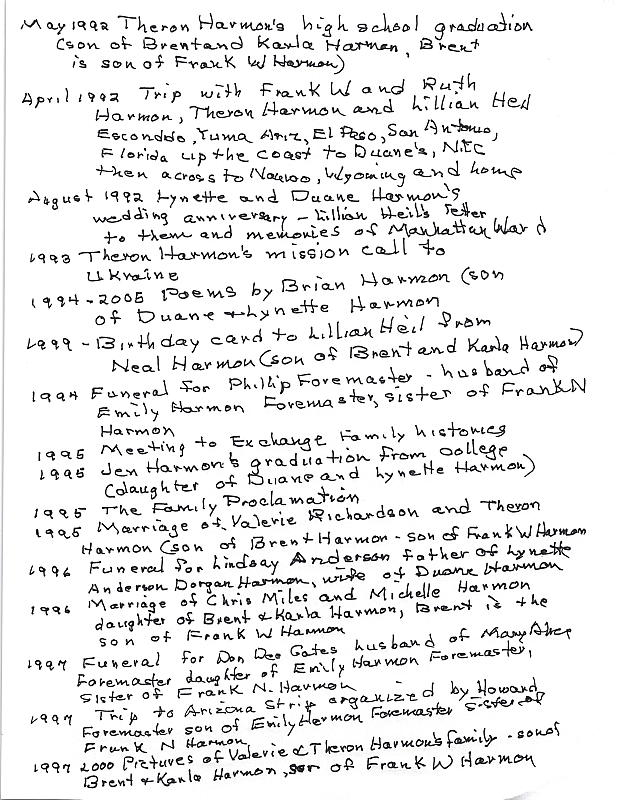 May 1992 Theron Harmon's high school graduation
(son of Brent and Karla Harmon, Brent
is son of Frank W Harmon)
April 1992 Trip with Frank W and Ruth
Harmon, Theron Harmon and Lillian Heil
Escondido, Yuma Ariz, El Paso, San Antonio,
Florida up the coast to Duane's,
then across to Nauvoo, Wyoming and home
August 1992 Lynette and Duane Harmon's
wedding anniversary - Lillian Heil's letter
to them and memories of Manhattan Ward
1993 Theron Harmon's mission call to
Ukraine
1994-2005 Poems by Brian Harmon (son
of Duane + Lynette Harmon
1999 - Birthday card to Lillian Heil from
Neal Harmon (son of Brent and Karla Harmon)
1994 Funeral for Phillip Foremaster - husband of
Emily Harmon Foremaster, sister of Frank N
Harmon
1995 Meeting to Exchange Family histories
1995 Jen Harmon's graduation from college
(daughter of Duane and Lynette Harmon)
1995 The Family Proclamation
1995 Marriage of Valerie Richardson and Theron
Harmon (son of Brent Harmon - son of Frank W Harmon
1996 Funeral for Lindsay Anderson father of Lynette
Anderson Dorgan Harmon, wife of Duane Harmon
1996 Marriage of Chris Miles and Michelle Harmon
daughter of Brent & Karla Harmon, Brent is the
son of Frank W Harmon
1997 Funeral for Don Dee Gates husband of Mary Alice
Foremaster daughter of Emily Harmon Foremaster,
Sister of Frank N. Harmon
1997 Trip to Arizona Strip organized by Howard
Foremaster son of Emily Harmon Foremaster sister of
Frank N Harmon
1997 2000 Pictures of Valerie & Theron Harmon's family - son of
Brent & Karla Harmon, son of Frank W Harmon